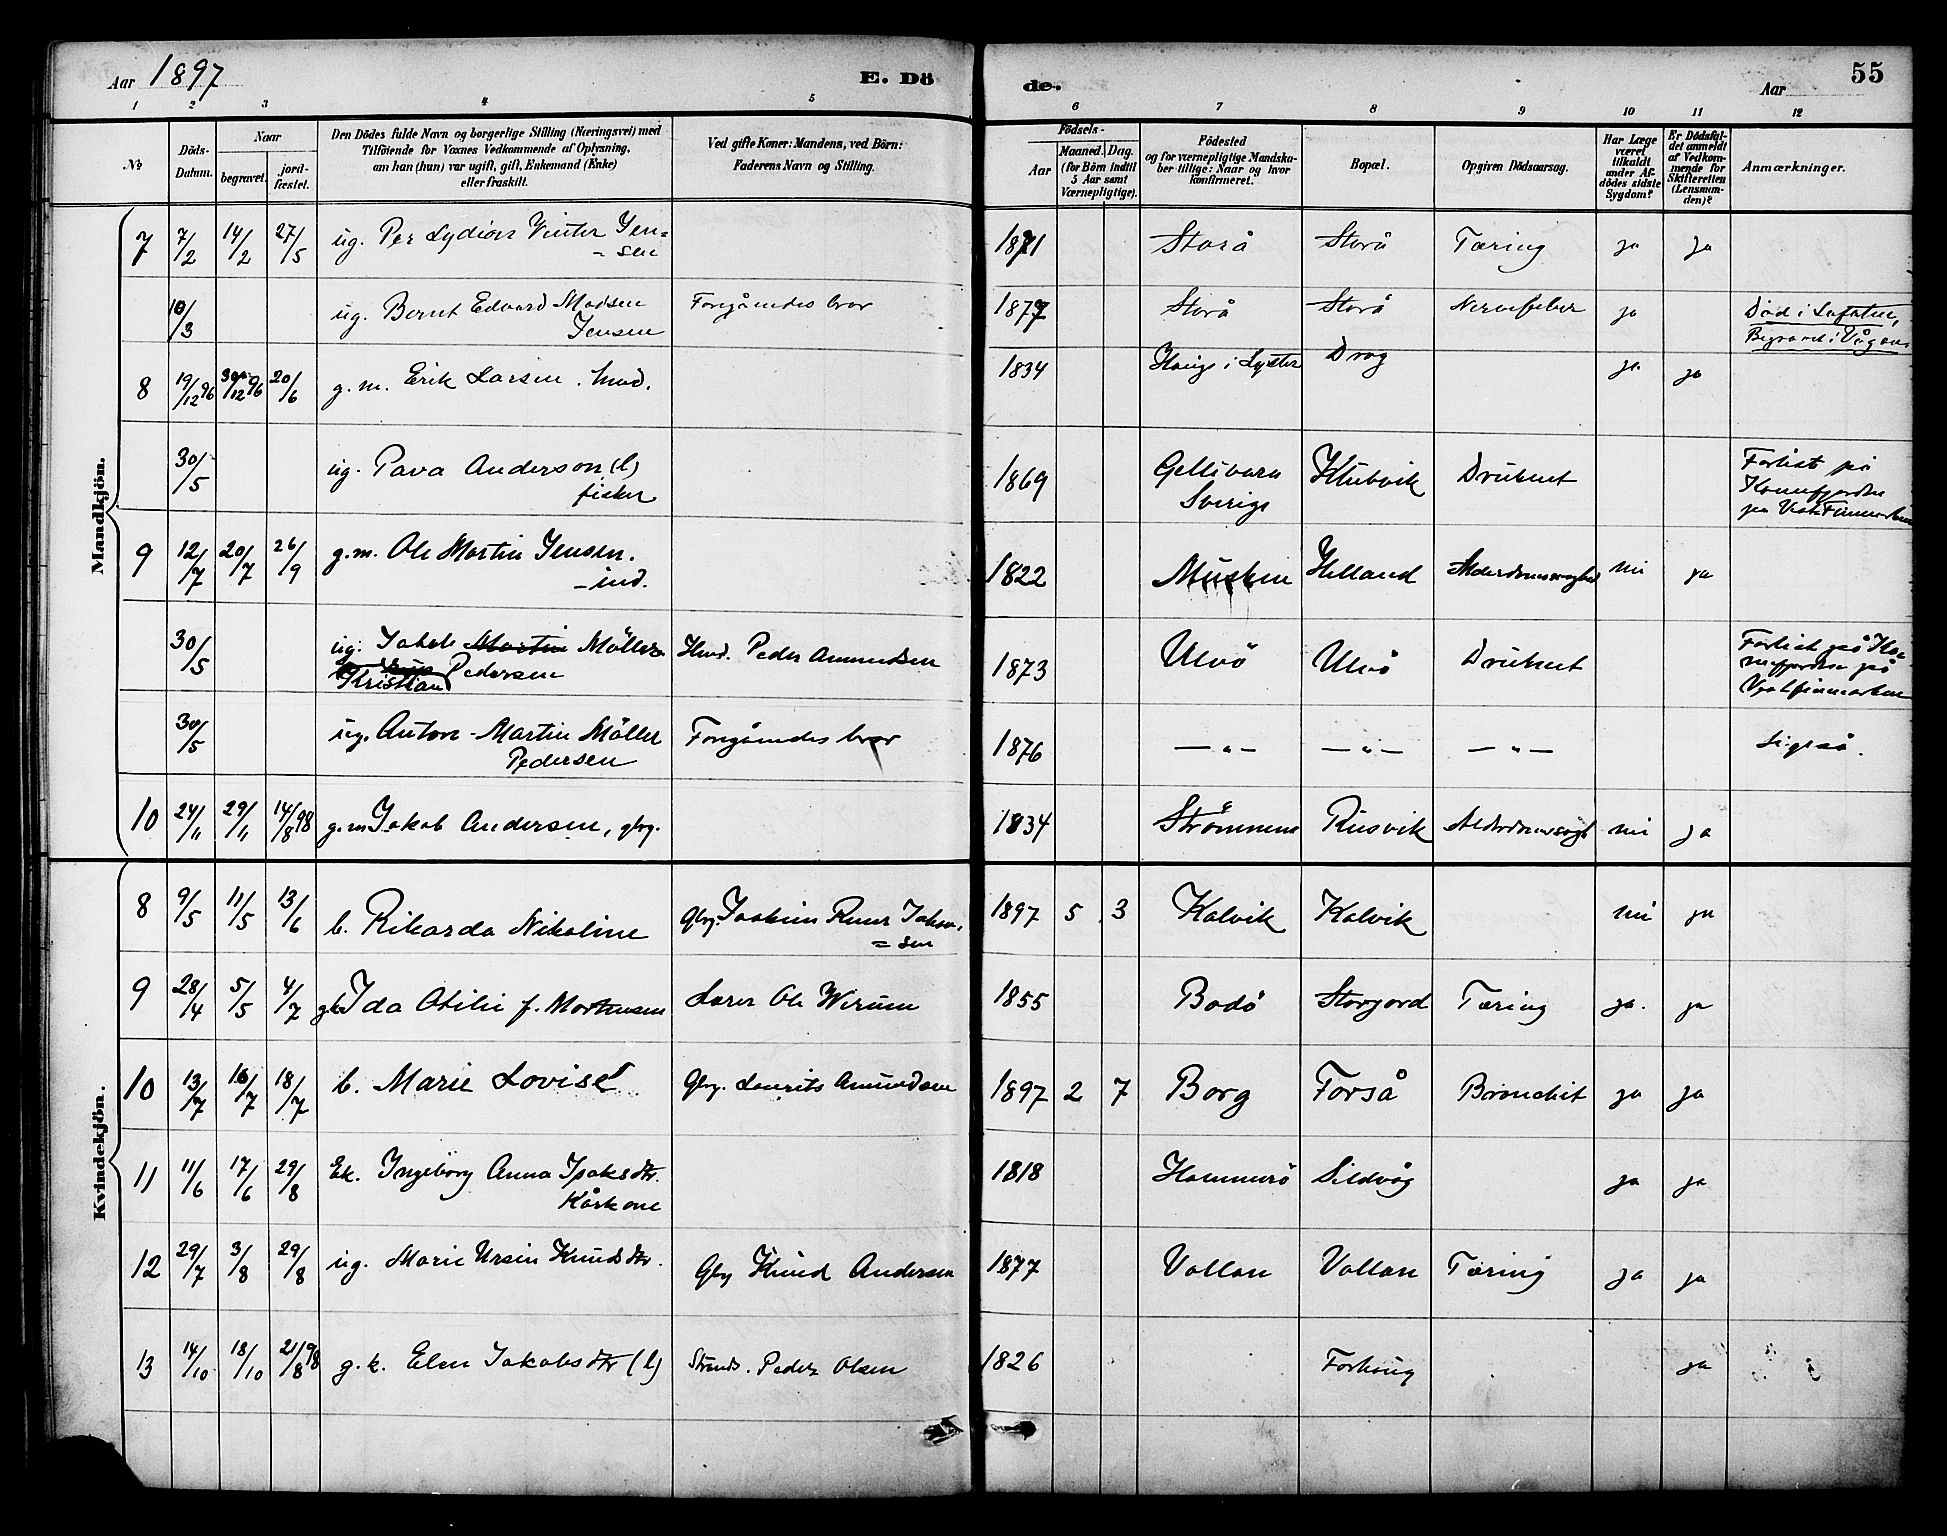 Aar 1897
E. Dö
de.
Aar
55
1 2 3 4 5 6 7 8 9 10 11 12
№
Döds-
Datum.
Naar
begravet.
jord-
fæstet.
Den Dödes fulde Navn og borgerlige Stilling (Næringsvei) med
Tilföiende for Voxnes Vedkommende af Oplysning,
om han (hun) var ugift, gift, Enkemand (Enke)
eller fraskilt.
Ved gifte Koner: Mandens, ved Börn:
Faderens Navn og Stilling.
Födsels-
Aar
Maaned. Dag.
(for Börn indtil
5 Aar samt
Værnepligtige).
Födested
og for værnepligtige Mandska-
ber tillige: Naar og hvor
konfirmeret.
Bopæl.
Opgiven Dödsaarsag.
Har Læge
været
tilkaldt
under Af-
dödes sidste
Sygdom?
Er Dödsfal-
det anmeldt
af Vedkom-
mende for
Skifteretten
(Lensman-
den)?
Anmærkninger.
Mandkjön.
7 7/2 14/2 27/5 ug. Per Lydion Winter Jen=
=sen
1871 Storå Storå Tæring ja ja
10/3 ug. Bernt Edvard Madsen
Jensen
Foregåendes bror 1877 Storå Storå Nervefeber ja
Död i Lofoten,
Begravet i Vågan
8 19/12 96 30/12 96 20/6 g. m. Erik Larsen. hmd.
1834 Haugs i Lyster Drag ja ja
30/5 ug. Pava Anderson (l)
fisker
1869 Gellivara
Sverige
Klubvik Druknet
Forlist på
på Vestfinmarken
9 12/7 20/7 26/9 g.m. Ole Martin Jensen.
-ind.
1822 Musken Helland Alderdomssvaghed nei ja
30/5 ug. Jakob Martin Möller
Kristian Pedersen
Hmd. Peder Amundsen 1873 Ulvö Ulvö Druknet
Forlist på
på
Vestfinmarken
30/5 ug. Anton Martin Möller
Pedersen
Foregåendes bror 1876 — " — — " — — " — Ligeså.
10 24/11 29/11 14/8 98 g.m. Jakob Andersen, gbrg.
1834 Strömmen Rusvik Alderdomssvagh nei ja
Kvindekjön.
8 9/5 11/5 13/6 b. Rikarda Nikoline Gbrg. Joakim
=sen
1897 5 3 Kalvik Kalvik nei ja
9 28/4 5/5 4/7 gk. Ida Otilie f. Mortensen Lærer Ole Wirum
1855 Bodö Storjord Tæring ja. ja
10 13/7 16/7 18/7 b. Marie Lovise Gbrg. Laurits Amundsen
1897 2 7 Borg Forså Bronchit ja ja
11 11/6 17/6 29/8 Ek. Ingeborg Anna Isaksdtr.
Kårkone
1818 Hammerö Sildvåg ja ja
12 29/7 3/8 29/8 ug. Marie Ursin Knudsdtr. Gbrg Knud Andersen
1877 Vollan Vollan Tæring ja ja
13 14/10 18/10 21/8 98 g. k. Elen Jakobsdtr (l) Strands. Peder Olsen
1826 Forhaug ja